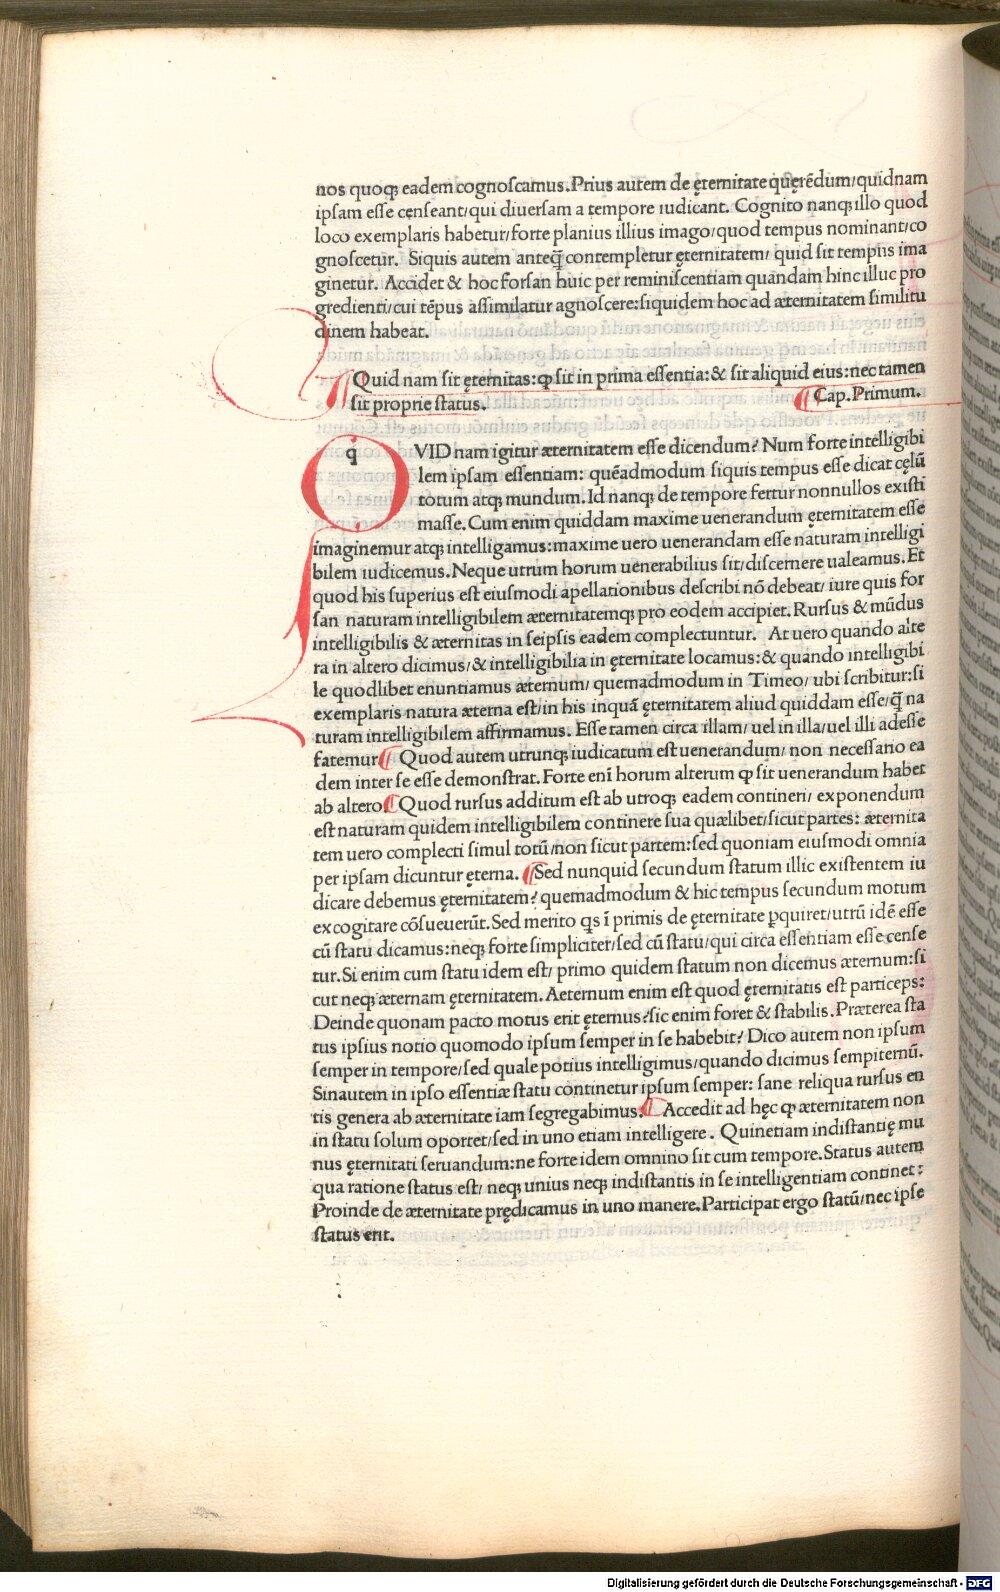 nos quoqꝫ eadem cognoſcamus. Prius autem de ęternitate quęrēdum/ quidnam
ipſam eſſe cenſeant/ qui diuerſam a tempore iudicant. Cognito nanqꝫ illo quod
loco exemplaris habetur/ forte planius illius imago/ quod tempus nominant/ co
gnoſcetur. Siquis autem anteq̃ contempletur ęternitatem/ quid ſit tempus ima
ginetur. Accidet & hoc forſan huic per reminiſcentiam quandam hinc illuc pro
gredienti/ cui tēpus aſſimilatur agnoſcere: ſiquidem hoc ad æternitatem ſimilitu
dinem habeat.
Quid nam ſit ęternitas: ꝙ ſit in prima eſſentia: & ſit aliquid eius: nec tamen
ſit proprie ſtatus. Cap. Primum.
q̇ VID nam igitur æternitatem eſſe dicendum? Num forte intelligibi
lem ipſam eſſentiam: quēadmodum ſiquis tempus eſſe dicat cęlū
totum atqꝫ mundum. Id nanqꝫ de tempore fertur nonnullos exiſti
maſſe. Cum enim quiddam maxime uenerandum ęternitatem eſſe
imaginemur atqꝫ intelligamus: maxime uero uenerandam eſſe naturam intelligi
bilem iudicemus. Neque utrum horum uenerabilius ſit/ diſcernere ualeamus. Et
quod his ſuperius eſt eiuſmodi apellationibus deſcribi nō debeat/ iure quis for
ſan naturam intelligibilem æternitatemqꝫ pro eodem accipiet. Rurſus & mūdus
intelligibilis & æternitas in ſeipſis eadem complectuntur. At uero quando alte
ra in altero dicimus/ & intelligibilia in ęternitate locamus: & quando intelligibi
le quodlibet enuntiamus æternum/ quemadmodum in Timeo/ ubi ſcribitur: ſi
exemplaris natura æterna eſt/ in his inquā ęternitatem aliud quiddam eſſe/ q̃ na
turam intelligibilem affirmamus. Eſſe tamen circa illam/ uel in illa/ uel illi adeſſe
fatemur. Quod autem utrunqꝫ iudicatum eſt uenerandum/ non neceſſario ea
dem inter ſe eſſe demonſtrat. Forte eni horum alterum ꝙ ſit uenerandum habet
ab altero. Quod rurſus additum eſt ab utroqꝫ eadem contineri/ exponendum
eſt naturam quidem intelligibilem continere ſua quælibet/ ſicut partes: æternita
tem uero complecti ſimul totū/ non ſicut partem: ſed quoniam eiuſmodi omnia
per ipſam dicuntur ęterna. Sed nunquid ſecundum ſtatum illic exiſtentem iu
dicare debemus ęternitatem? quemadmodum & hic tempus ſecundum motum
excogitare cōſueuerūt. Sed merito qꝫs ī primis de ęternitate ꝑquiret/ utrū idē eſſe
cū ſtatu dicamus: neqꝫ forte ſimpliciter/ ſed cū ſtatu/ qui circa eſſentiam eſſe cenſe
tur. Si enim cum ſtatu idem eſt/ primo quidem ſtatum non dicemus æternum: ſi
cut neqꝫ æternam ęternitatem. Aeternum enim eſt quod ęternitatis eſt particeps:
Deinde quonam pacto motus erit ęternus? ſic enim foret & ſtabilis. Præterea ſta
tus ipſius notio quomodo ipſum ſemper in ſe habebit? Dico autem non ipſum
ſemper in tempore/ ſed quale potius intelligimus/ quando dicimus ſempiternū.
Sinautem in ipſo eſſentiæ ſtatu continetur ipſum ſemper: ſane reliqua rurſus en
tis genera ab æternitate iam ſegregabimus. Accedit ad hęc ꝙ æternitatem non
in ſtatu ſolum oportet/ ſed in uno etiam intelligere. Quinetiam indiſtantię mu
nus ęternitati ſeruandum: ne forte idem omnino ſit cum tempore. Status autem
qua ratione ſtatus eſt/ neqꝫ unius neqꝫ indiſtantis in ſe intelligentiam continet:
Proinde de æternitate prędicamus in uno manere. Participat ergo ſtatū/ nec ipſe
ſtatus erit.
Digitalisierung gefördert durch die Deutsche Forschungsgemeinschaft - DFG